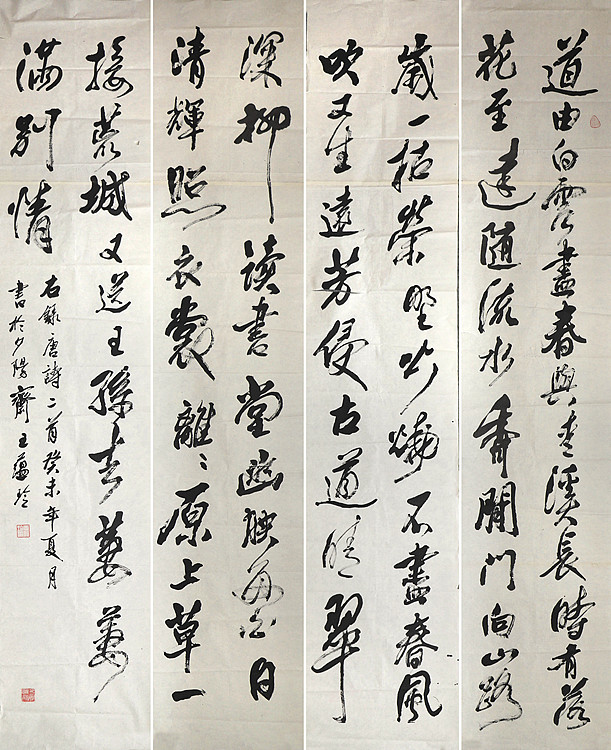 道由白雲盡春與青溪長時有落
花至遠隨流水香閒門向山路
歲一枯榮野火燒不盡春風
吹又生遠芳侵古道晴翠
深柳讀書堂幽映每白日
清輝照衣裳離〻原上草一
接荒城又送王孫去萋萋
滿別情
右錄唐詩二首癸未年夏月
書於夕陽齋王蘊玲